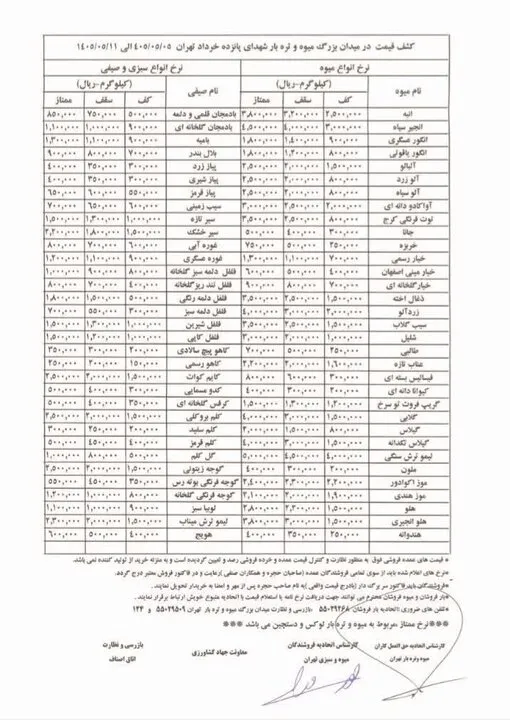 کشف قیمت در میدان بزرگ میوه و تره بار شهدای پانزده خرداد تهران ۴۰۵/۰۵/۰۵ الی ۱۴۰۵/۰۵/۱۱
نرخ انواع میوه نرخ انواع سبزی و صیفی
نام میوه (کیلوگرم-ریال) نام صیفی (کیلوگرم-ریال)
کف سقف ممتاز کف سقف ممتاز
انبه ۲,۵۰۰,۰۰۰ ۳,۲۰۰,۰۰۰ ۳,۸۰۰,۰۰۰ بادمجان قلمی و دلمه ۵۰۰,۰۰۰ ۷۵۰,۰۰۰ ۸۵۰,۰۰۰
انجیر سیاه ۳,۰۰۰,۰۰۰ ۴,۰۰۰,۰۰۰ ۴,۵۰۰,۰۰۰ بادمجان گلخانه ای ۹۰۰,۰۰۰ ۱,۰۰۰,۰۰۰ ۱,۱۰۰,۰۰۰
انگور عسگری ۹۰۰,۰۰۰ ۱,۴۰۰,۰۰۰ ۱,۸۰۰,۰۰۰ بامیه ۹۰۰,۰۰۰ ۱,۱۰۰,۰۰۰ ۱,۳۰۰,۰۰۰
انگور یاقوتی ۸۰۰,۰۰۰ ۱,۲۰۰,۰۰۰ ۱,۸۰۰,۰۰۰ بلال بندر ۷۰۰,۰۰۰ ۸۰۰,۰۰۰ ۹۰۰,۰۰۰
آلبالو ۱,۵۰۰,۰۰۰ ۲,۰۰۰,۰۰۰ ۲,۵۰۰,۰۰۰ پیاز زرد ۳۰۰,۰۰۰ ۳۵۰,۰۰۰ ۴۰۰,۰۰۰
آلو زرد ۸۰۰,۰۰۰ ۲,۰۰۰,۰۰۰ ۲,۵۰۰,۰۰۰ پیاز شیری ۳۰۰,۰۰۰ ۳۵۰,۰۰۰ ۴۰۰,۰۰۰
آلو سیاه ۸۰۰,۰۰۰ ۲,۰۰۰,۰۰۰ ۲,۵۰۰,۰۰۰ پیاز قرمز ۵۵۰,۰۰۰ ۶۰۰,۰۰۰ ۶۵۰,۰۰۰
آواکادو دانه ای ۲,۰۰۰,۰۰۰ سیب زمینی ۶۰۰,۰۰۰ ۶۵۰,۰۰۰ ۷۰۰,۰۰۰
توت فرنگی کرج ۸۰۰,۰۰۰ ۲,۵۰۰,۰۰۰ ۳,۵۰۰,۰۰۰ سیر تازه ۱,۰۰۰,۰۰۰ ۱,۳۰۰,۰۰۰ ۱,۵۰۰,۰۰۰
جانا ۳۰۰,۰۰۰ ۴۰۰,۰۰۰ ۵۰۰,۰۰۰ سیر خشک ۱,۵۰۰,۰۰۰ ۱,۸۰۰,۰۰۰ ۲,۰۰۰,۰۰۰
خربزه ۲۵۰,۰۰۰ ۵۰۰,۰۰۰ ۷۵۰,۰۰۰ غوره آبی ۶۰۰,۰۰۰ ۷۰۰,۰۰۰ ۸۰۰,۰۰۰
خیار رسمی ۷۰۰,۰۰۰ ۱,۱۰۰,۰۰۰ ۱,۳۰۰,۰۰۰ غوره عسگری ۹۰۰,۰۰۰ ۱,۱۰۰,۰۰۰ ۱,۲۰۰,۰۰۰
خیار مینی اصفهان ۴۰۰,۰۰۰ ۵۰۰,۰۰۰ ۶۰۰,۰۰۰ فلفل دلمه سبز گلخانه ۸۰۰,۰۰۰ ۹۰۰,۰۰۰ ۱,۰۰۰,۰۰۰
خیارگلخانه ای ۷۰۰,۰۰۰ ۸۰۰,۰۰۰ ۹۰۰,۰۰۰ فلفل تند ریزگلخانه ۴۰۰,۰۰۰ ۷۰۰,۰۰۰ ۸۰۰,۰۰۰
ذغال اخته ۱,۵۰۰,۰۰۰ ۲,۵۰۰,۰۰۰ ۳,۵۰۰,۰۰۰ فلفل دلمه رنگی ۵۰۰,۰۰۰ ۱,۵۰۰,۰۰۰ ۱,۸۰۰,۰۰۰
زردآلو ۲,۰۰۰,۰۰۰ ۳,۰۰۰,۰۰۰ ۴,۰۰۰,۰۰۰ فلفل دلمه سبز ۳۰۰,۰۰۰ ۵۵۰,۰۰۰ ۷۰۰,۰۰۰
سیب گلاب ۱,۵۰۰,۰۰۰ ۲,۵۰۰,۰۰۰ ۳,۵۰۰,۰۰۰ فلفل شیرین ۱,۰۰۰,۰۰۰ ۱,۳۰۰,۰۰۰ ۱,۵۰۰,۰۰۰
شلیل ۱,۰۰۰,۰۰۰ ۲,۰۰۰,۰۰۰ ۳,۰۰۰,۰۰۰ فلفل کاپی ۱,۰۰۰,۰۰۰ ۱,۲۰۰,۰۰۰ ۱,۵۰۰,۰۰۰
طالبی ۲۵۰,۰۰۰ ۵۰۰,۰۰۰ ۷۰۰,۰۰۰ کاهو پیچ سالادی ۲۰۰,۰۰۰ ۳۰۰,۰۰۰ ۳۵۰,۰۰۰
عناب تازه ۱,۶۰۰,۰۰۰ ۲,۰۰۰,۰۰۰ ۲,۲۰۰,۰۰۰ کاهو رسمی ۱۵۰,۰۰۰ ۲۰۰,۰۰۰ ۲۵۰,۰۰۰
فیسالیس بسته ای ۳۰۰,۰۰۰ ۶۰۰,۰۰۰ ۸۰۰,۰۰۰ ۱,۰۰۰,۰۰۰ ۲,۰۰۰,۰۰۰ ۲,۵۰۰,۰۰۰
کیوانا دانه ای ۲۰۰,۰۰۰ ۳۰۰,۰۰۰ ۴۰۰,۰۰۰ کدو مسمایی ۳۰۰,۰۰۰ ۴۰۰,۰۰۰ ۵۰۰,۰۰۰
گریپ فروت تو سرخ ۱,۲۰۰,۰۰۰ ۱,۳۰۰,۰۰۰ ۱,۵۰۰,۰۰۰ کرفس گلخانه ای ۳۵۰,۰۰۰ ۴۰۰,۰۰۰ ۵۰۰,۰۰۰
گلابی ۱,۵۰۰,۰۰۰ ۳,۰۰۰,۰۰۰ ۴,۰۰۰,۰۰۰ کلم بروکلی ۱,۵۰۰,۰۰۰ ۲,۰۰۰,۰۰۰ ۲,۵۰۰,۰۰۰
گیلاس ۸۰۰,۰۰۰ ۱,۵۰۰,۰۰۰ ۲,۰۰۰,۰۰۰ کلم سفید ۲۰۰,۰۰۰ ۲۵۰,۰۰۰ ۳۰۰,۰۰۰
گیلاس تکدانه ۱,۵۰۰,۰۰۰ ۳,۰۰۰,۰۰۰ ۴,۰۰۰,۰۰۰ کلم قرمز ۴۰۰,۰۰۰ ۴۵۰,۰۰۰ ۵۰۰,۰۰۰
لیمو ترش سنگی ۴,۰۰۰,۰۰۰ ۴,۵۰۰,۰۰۰ ۵,۰۰۰,۰۰۰ گل کلم ۵۰۰,۰۰۰ ۸۰۰,۰۰۰ ۱,۰۰۰,۰۰۰
ملون ۲۰۰,۰۰۰ ۳۰۰,۰۰۰ ۴۰۰,۰۰۰ گوجه زیتونی ۱,۵۰۰,۰۰۰ ۲,۰۰۰,۰۰۰ ۲,۵۰۰,۰۰۰
موز اکوادور ۲,۲۰۰,۰۰۰ ۲,۳۰۰,۰۰۰ ۲,۴۰۰,۰۰۰ گوجه فرنگی بوته رس ۳۵۰,۰۰۰ ۴۵۰,۰۰۰ ۵۵۰,۰۰۰
موز هندی ۱,۹۰۰,۰۰۰ ۲,۰۰۰,۰۰۰ ۲,۱۰۰,۰۰۰ گوجه فرنگی گلخانه ۸۰۰,۰۰۰ ۱,۰۰۰,۰۰۰ ۱,۲۰۰,۰۰۰
هلو ۱,۵۰۰,۰۰۰ ۲,۰۰۰,۰۰۰ ۳,۰۰۰,۰۰۰ لوبیا سبز ۹۰۰,۰۰۰ ۱,۰۰۰,۰۰۰ ۱,۱۰۰,۰۰۰
هلو انجیری ۲,۰۰۰,۰۰۰ ۳,۰۰۰,۰۰۰ ۳,۸۰۰,۰۰۰ لیمو ترش میناب ۱,۵۰۰,۰۰۰ ۲,۰۰۰,۰۰۰ ۲,۳۰۰,۰۰۰
هندوانه ۲۵۰,۰۰۰ ۳۵۰,۰۰۰ ۴۰۰,۰۰۰ هویج ۴۰۰,۰۰۰ ۵۰۰,۰۰۰ ۶۰۰,۰۰۰
*قیمت های عمده فروشی فوق به منظور نظارت و کنترل قیمت عمده و خرده فروشی رصد و تعیین گردیده است و به منزله خرید از تولید کننده نمی باشد.
*نرخ های اعلام شده باید از سوی تمامی فروشندگان عمده (صاحبان حجره و همکاران صنفی) رعایت و در فاکتور فروش معتبر درج گردد.
*فروشندگان باید فاکتور سر برگ دار (بادرج قیمت واقعی) به نام صاحب حجره پس از مهر و امضا به خریدار تحویل نمایند.
*بار فروشان و میوه فروشان محترم می توانند جهت دریافت نرخ نامه یا استعلام قیمت با اتحادیه متبوع خویش ارتباط برقرار نمایند.
*تلفن های ضروری: اتحادیه بار فروشان بازرسی و نظارت میدان بزرگ میوه و تره بار تهران ۵۵۰۲۹۵۰۹ و ۱۲۴
***نرخ ممتاز مربوط به میوه و تره بار لوکس و دستچین می باشد***
کارشناس اتحادیه حق العمل کاران میوه وتره بار تهران
کارشناس اتحادیه فروشندگان میوه و سبزی تهران
معاونت جهاد کشاورزی
بازرسی و نظارت اتاق اصناف